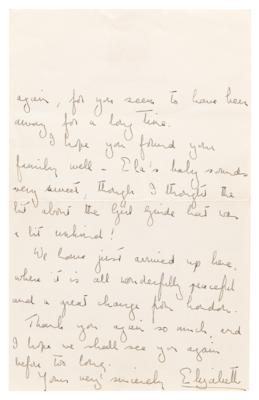 again, for you seem to have been
away for a long time.
I hope you found your
family well - Ela's baby sounds
very sweet, though I thought the
bit about the Girl Guide hat was
a bit unkind!
We have just arrived up here,
where it is all wonderfully peaceful
and a great change from London.
Thank you again so much and
I hope we shall see you again
before too long.
Yours very sincerely Elizabeth